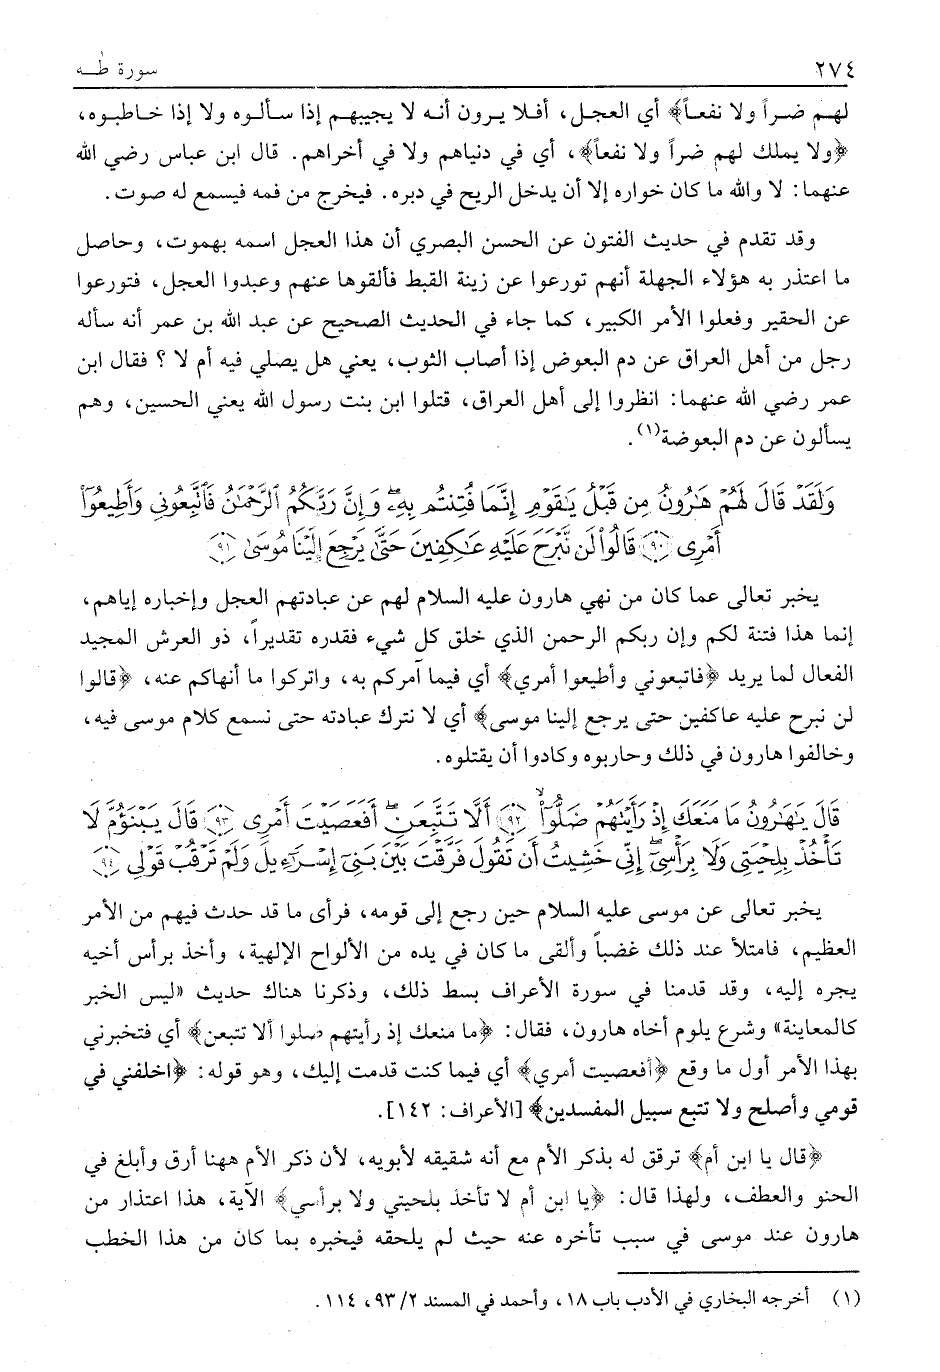 ٢٧٤
سورة طـه
لهـم ضـراً ولا نفعـاً﴾ أي العجـل، أفـلا يـرون أنـه لا يجيبهـم إذا سـألـوه ولا إذا خـاطبـوه،
﴿ولا يملك لهم ضراً ولا نفعاً﴾، أي في دنياهم ولا في أخراهم. قال ابن عباس رضي الله
عنهما: لا والله ما كان خواره إلا أن يدخل الريح في دبره. فيخرج من فمه فيسمع له صوت.
وقد تقدم في حديث الفتون عن الحسن البصري أن هذا العجل اسمه بهموت، وحاصل
ما اعتذر به هؤلاء الجهلة أنهم تورعوا عن زينة القبط فألقوها عنهم وعبدوا العجل، فتورعوا
عن الحقير وفعلوا الأمر الكبير، كما جاء في الحديث الصحيح عن عبد الله بن عمر أنه سأله
رجل من أهل العراق عن دم البعوض إذا أصاب الثوب، يعني هل يصلي فيه أم لا ؟ فقال ابن
عمر رضي الله عنهما: انظروا إلى أهل العراق، قتلوا ابن بنت رسول الله يعني الحسين، وهم
يسألون عن دم البعوضة(١).
وَلَقَدْ قَالَ لَهُمْ هَٰرُونُ مِن قَبْلُ يَٰقَوْمِ إِنَّمَا فُتِنتُم بِهِۦ ۖ وَإِنَّ رَبَّكُمُ ٱلرَّحْمَٰنُ فَٱتَّبِعُونِى وَأَطِيعُوٓا۟
أَمْرِى ﴿٩٠﴾ قَالُوا۟ لَن نَّبْرَحَ عَلَيْهِ عَٰكِفِينَ حَتَّىٰ يَرْجِعَ إِلَيْنَا مُوسَىٰ ﴿٩١﴾
يخبر تعالى عما كان من نهي هارون عليه السلام لهم عن عبادتهم العجل وإخباره إياهم،
إنما هذا فتنة لكم وإن ربكم الرحمن الذي خلق كل شيء فقدره تقديراً، ذو العرش المجيد
الفعال لما يريد ﴿فاتبعوني وأطيعوا أمري﴾ أي فيما آمركم به، واتركوا ما أنهاكم عنه، ﴿قالوا
لن نبرح عليه عاكفين حتى يرجع إلينا موسى﴾ أي لا نترك عبادته حتى نسمع كلام موسى فيه،
وخالفوا هارون في ذلك وحاربوه وكادوا أن يقتلوه.
قَالَ يَٰهَٰرُونُ مَا مَنَعَكَ إِذْ رَأَيْتَهُمْ ضَلُّوٓا۟ ﴿٩٢﴾ أَلَّا تَتَّبِعَنِ ۖ أَفَعَصَيْتَ أَمْرِى ﴿٩٣﴾ قَالَ يَبْنَؤُمَّ لَا
تَأْخُذْ بِلِحْيَتِى وَلَا بِرَأْسِىٓ ۖ إِنِّى خَشِيتُ أَن تَقُولَ فَرَّقْتَ بَيْنَ بَنِىٓ إِسْرَٰٓءِيلَ وَلَمْ تَرْقُبْ قَوْلِى ﴿٩٤﴾
يخبر تعالى عن موسى عليه السلام حين رجع إلى قومه، فرأى ما قد حدث فيهم من الأمر
العظيم، فامتلأ عند ذلك غضباً وألقى ما كان في يده من الألواح الإلهية، وأخذ برأس أخيه
يجره إليه، وقد قدمنا في سورة الأعراف بسط ذلك، وذكرنا هناك حديث «ليس الخبر
كالمعاينة» وشرع يلوم أخاه هارون، فقال: ﴿ما منعك إذ رأيتهم ضلوا ألا تتبعن﴾ أي فتخبرني
بهذا الأمر أول ما وقع ﴿أفعصيت أمري﴾ أي فيما كنت قدمت إليك، وهو قوله: ﴿اخلفني في
قومي وأصلح ولا تتبع سبيل المفسدين﴾ [الأعراف: ١٤٢].
﴿قال يا ابن أم﴾ ترقق له بذكر الأم مع أنه شقيقه لأبويه، لأن ذكر الأم ههنا أرق وأبلغ في
الحنو والعطف، ولهذا قال: ﴿يا ابن أم لا تأخذ بلحيتي ولا برأسي﴾ الآية، هذا اعتذار من
هارون عند موسى في سبب تأخره عنه حيث لم يلحقه فيخبره بما كان من هذا الخطب
(١) أخرجه البخاري في الأدب باب ١٨، وأحمد في المسند ٩٣/٢، ١١٤.